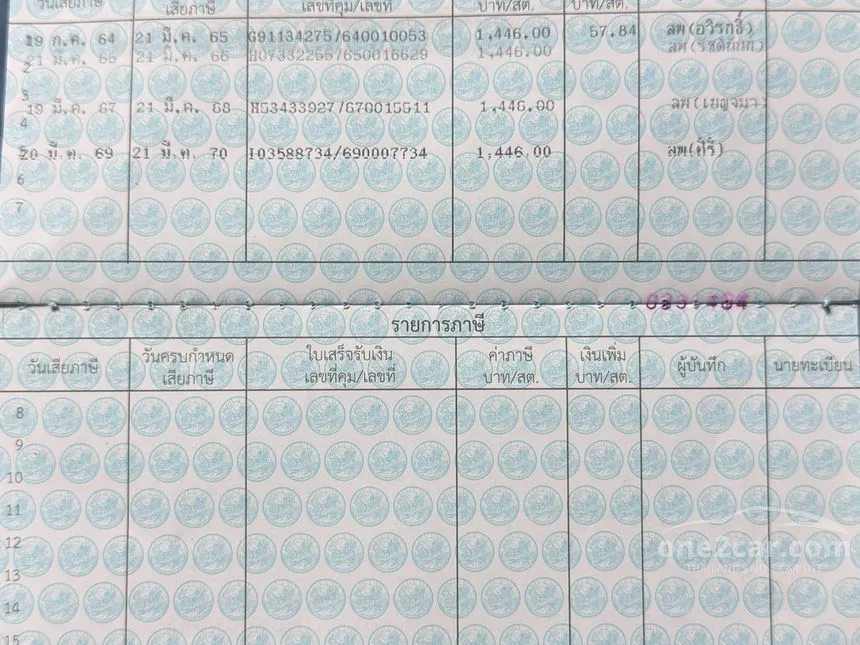 วันเสียภาษี เสียภาษี เลขที่คุม/เลขที่ บาท/สต. บาท/สต.
19 ก.ค. 64 21 มี.ค. 65 G91134275/640010053 1,446.00 57.84 ลพ(อวิรุทธิ์)
21 มี.ค. 65 21 มี.ค. 66 H07332255/650016629 1,446.00
2
3
19 มี.ค. 67 21 มี.ค. 68 H53433927/670015511 1,446.00 ลพ(เบญจมา)
4
5
20 มี.ค. 69 21 มี.ค. 70 I03588734/690007734 1,446.00 ลพ(ศิริ)
6
7
รายการภาษี
วันเสียภาษี วันครบกำหนด เสียภาษี ใบเสร็จรับเงิน เลขที่คุม/เลขที่ ค่าภาษี บาท/สต. เงินเพิ่ม บาท/สต. ผู้บันทึก นายทะเบียน
8
9
10
11
12
13
14
15
one2car.com